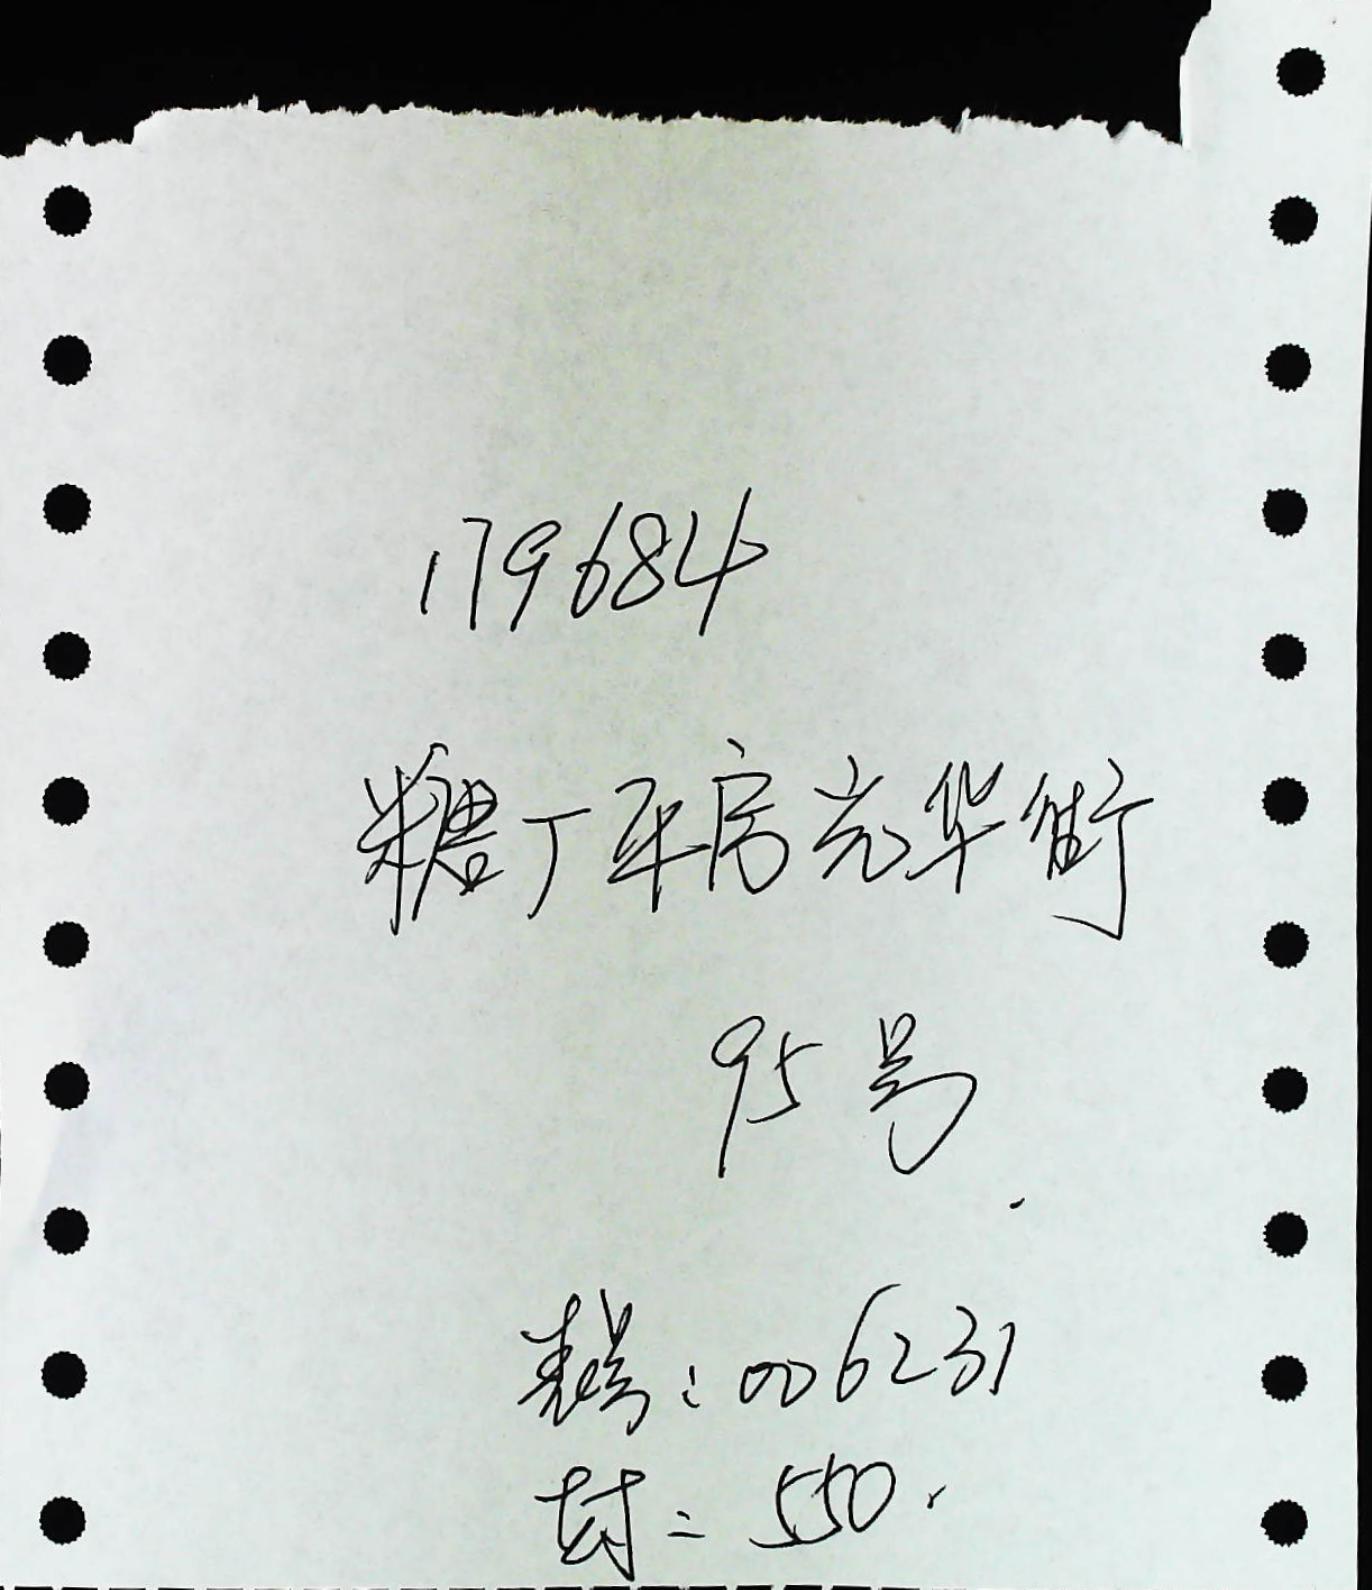 179684
糖丁平房光华街
95号
表号：006231
封：550.